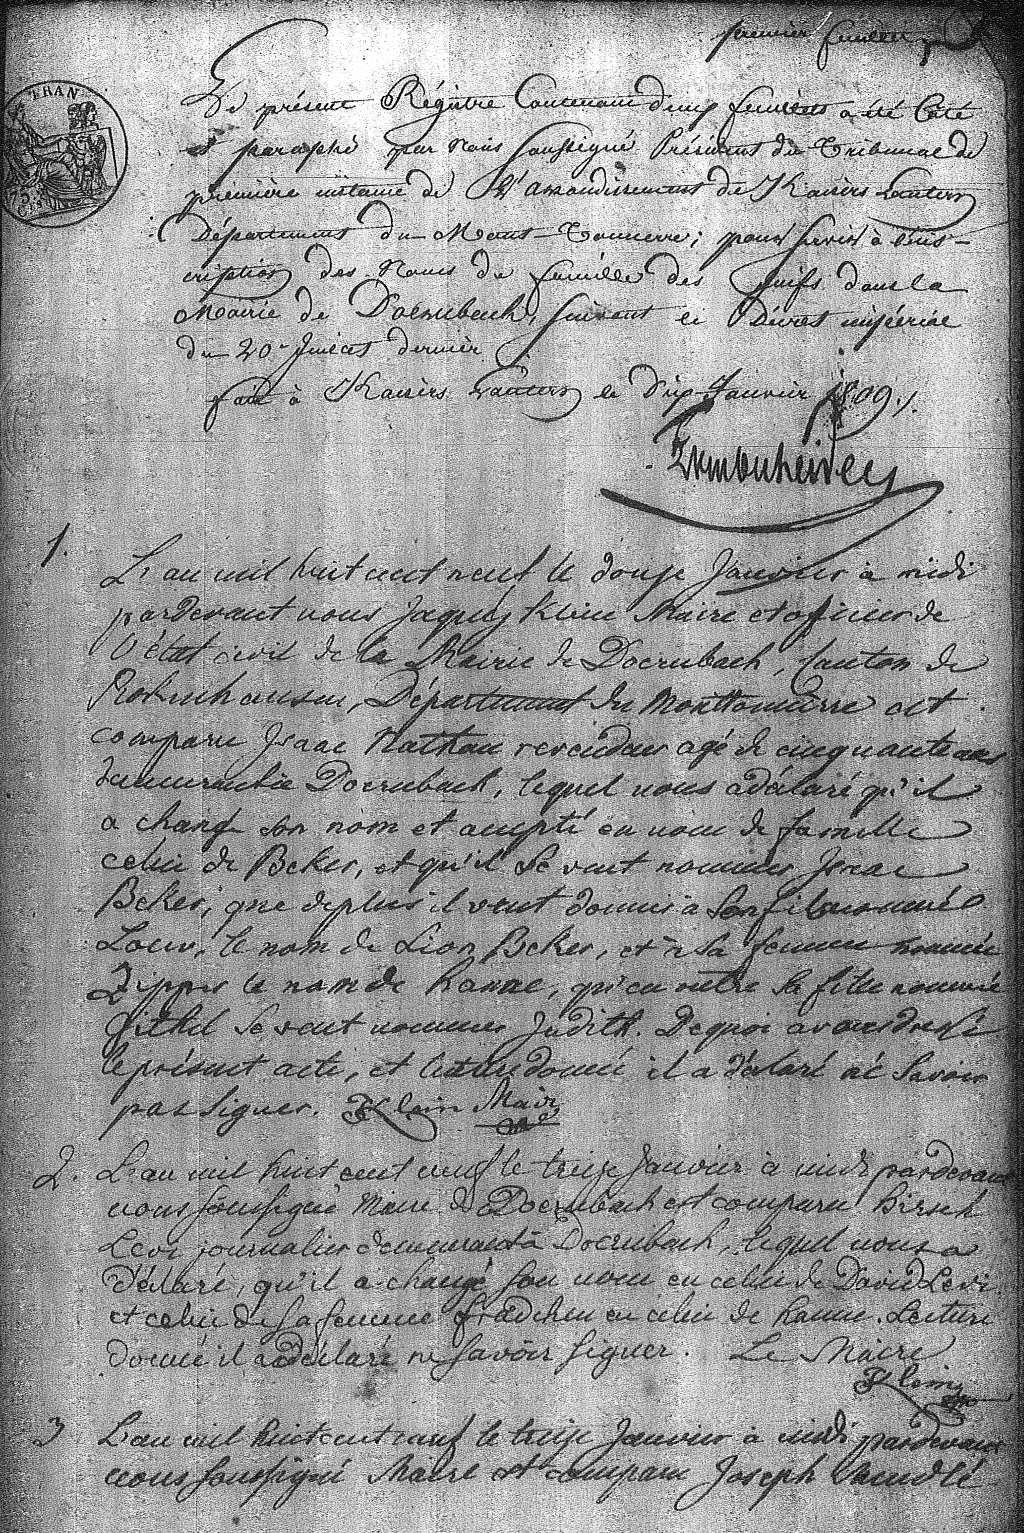 premier feuillet
TRAN
75
Le présent Régistre Contenant deux feuillets a été Coté
et paraphé par Nous Soussigné Président du Tribunal de
première instance de l'arrondissement de Kaisers Lautern
Département du Mont-Tonnerre; pour servir à l'ins-
cription des Noms de famille des Juifs dans la
Mairie de Doernbach, suivant le Décret impérial
du 20 Juillet dernier
fait à Kaisers Lautern le dix Janvier 1809./.
1.
L'an mil huit cent neuf le douze Janvier à midi
pardevant nous Jaques Klein Maire et officier de
l'état civil de la Mairie de Doernbach, Canton de
Rokenhausen, Département du Monttonnerre est
comparu Isaac Nathan revendeur agé de cinquante ans
demeurant à Doernbach, lequel nous a déclaré qu'il
a changé son nom et accepté en nom de famille
celui de Beker, et qu'il se veut nommer Isaac
Beker, que de plus il veut donner à son fils nommé
Loew, le nom de Lion Beker, et à sa femme nommée
Zipper le nom de Hanne, qu'en outre sa fille nommée
Githel se veut nommer Judith. De quoi avons dressé
le présent acte, et lecture donné il a déclaré ne savoir
pas signer. Klein Maire
2. L'an mil huit cent neuf le treize Janvier à midi pardevant
nous soussigné Maire de Doernbach est comparu Hirsch
Levi journalier demeurant à Doernbach, lequel nous a
déclaré, qu'il a changé son nom en celui de David Levi
et celui de sa femme Fradchen en celui de Hanne. Lecture
donné il a déclaré ne savoir signer. Le Maire
Klein
3 L'an mil huit cent neuf le treize Janvier à midi pardevant
nous soussigné Maire est comparu Joseph